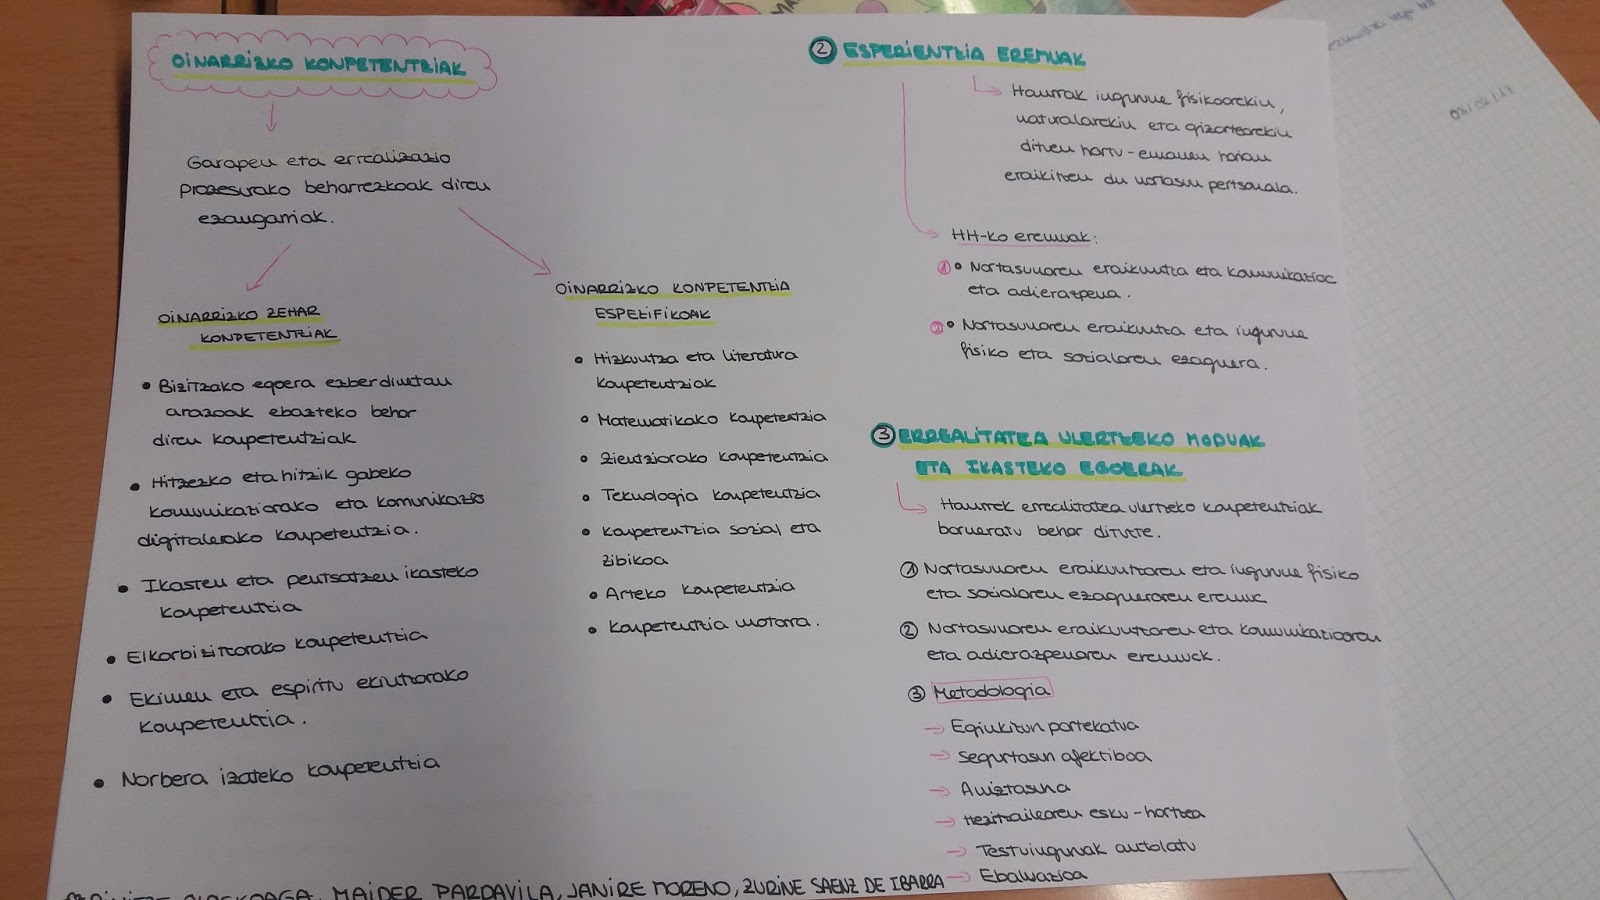 OINARRIZKO KONPETENTZIAK
Garapen eta errealizazio
prozesurako beharrezkoak diren
ezaugarriak.
OINARRIZKO ZEHAR
KONPETENTZIAK
• Bizitzako egoera ezberdinetan
arazoak ebazteko behar
diren konpetentziak
• Hitzezko eta hitzik gabeko
komunikaziorako eta komunikazio
digitalerako konpetentzia.
• Ikasten eta pentsatzen ikasteko
konpetentzia
• Elkarbizitzarako konpetentzia
• Ekimen eta espiritu ekintzarako
konpetentzia.
• Norbera izateko konpetentzia
OINARRIZKO KONPETENTZIA
ESPEZIFIKOAK
• Hizkuntza eta literatura
konpetentziak
• Matematikako konpetentzia
• Zientziarako konpetentzia
• Teknologia konpetentzia
• Konpetentzia sozial eta
zibikoa
• Arteko konpetentzia
• Konpetentzia motorra.
2 ESPERIENTZIA EREMUAK
Haurrak ingurune fisikoarekin,
naturalarekin eta gizartearekin
dituen hartu-emanen harian
eraikitzen du nortasun pertsonala.
HH-ko eremuak:
1 • Nortasunaren eraikuntza eta komunikazioa
eta adierazpena.
2 • Nortasunaren eraikuntza eta ingurune
fisiko eta sozialaren ezaguera.
3 ERREALITATEA ULERTZEKO MODUAK
ETA IKASTEKO EGOERAK
Haurrek errealitatea ulertzeko konpetentziak
barneratu behar dituzte.
1 Nortasunaren eraikuntzaren eta ingurune fisiko
eta sozialaren ezagueraren eremuk
2 Nortasunaren eraikuntzaren eta komunikazioaren
eta adierazpenaren eremuek.
3 Metodologia
→ Eginkizun partekatua
→ Segurtasun afektiboa
→ Aniztasuna
→ Hezitzailearen esku-hartzea
→ Testuinguruak antolatu
→ Ebaluazioa
MAIDER PARDAVILA, JANIRE MORENO, ZURINE SAENZ DE IBARRA